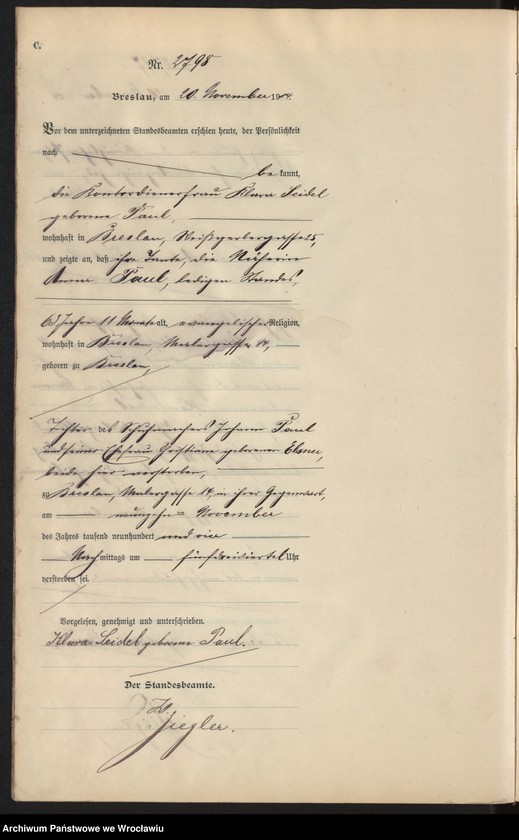 C.
Nr. 2798
Breslau, am 20. November 1904.
Vor dem unterzeichneten Standesbeamten erschien heute, der Persönlichkeit
nach be kannt,
die Kontordienerfrau Klara Seidel
geborene Paul,
wohnhaft in Breslau, Weißgerbergasse 25,
und zeigte an, daß ihre Tante, die Näherin
Anna Paul, ledigen Standes,
63 Jahre 11 Monate alt, evangelischer Religion,
wohnhaft in Breslau, Malergasse 14,
geboren zu Breslau,
Tochter des Schuhmachers Johann Paul
und seiner Ehefrau Christiane geborenen Elsner,
beide hier verstorben,
zu Breslau, Malergasse 14, in ihrer Gegenwart,
am neunzehn = November
des Jahres tausend neunhundert und vier
Nachmittags um fünfdreiviertel Uhr
verstorben sei.
Vorgelesen, genehmigt und unterschrieben.
Klara Seidel geborene Paul.
Der Standesbeamte.
Ziegler.
Archiwum Państwowe we Wrocławiu